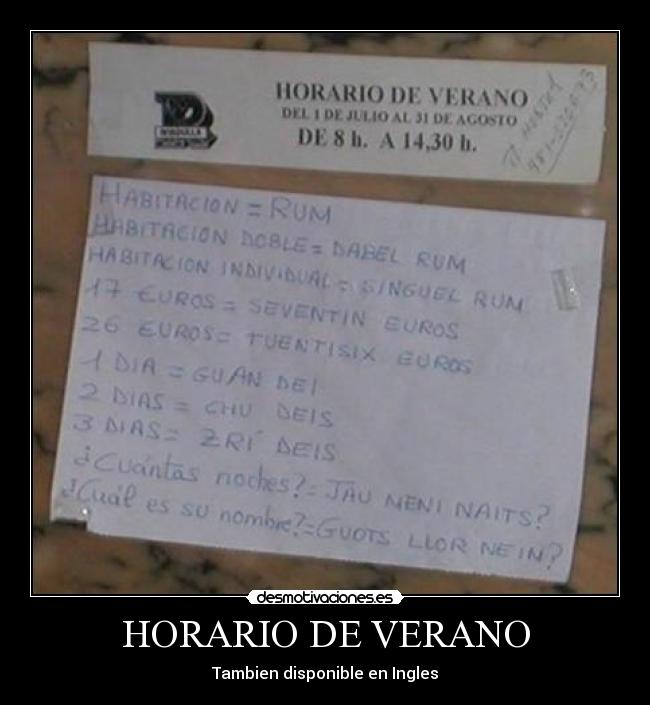 HORARIO DE VERANO
DEL 1 DE JULIO AL 31 DE AGOSTO
DE 8 h. A 14,30 h.
HABITACION = RUM
HABITACION DOBLE = DABEL RUM
HABITACION INDIVIDUAL = SINGUEL RUM
17 EUROS = SEVENTIN EUROS
26 EUROS = TUENTISIX EUROS
1 DIA = GUAN DEI
2 DIAS = CHU DEIS
3 DIAS = ZRI DEIS
¿Cuántas noches? = JAU MENI NAITS?
¿Cuál es su nombre? = GUOTS LLOR NEIN?
desmotivaciones.es
HORARIO DE VERANO
Tambien disponible en Ingles